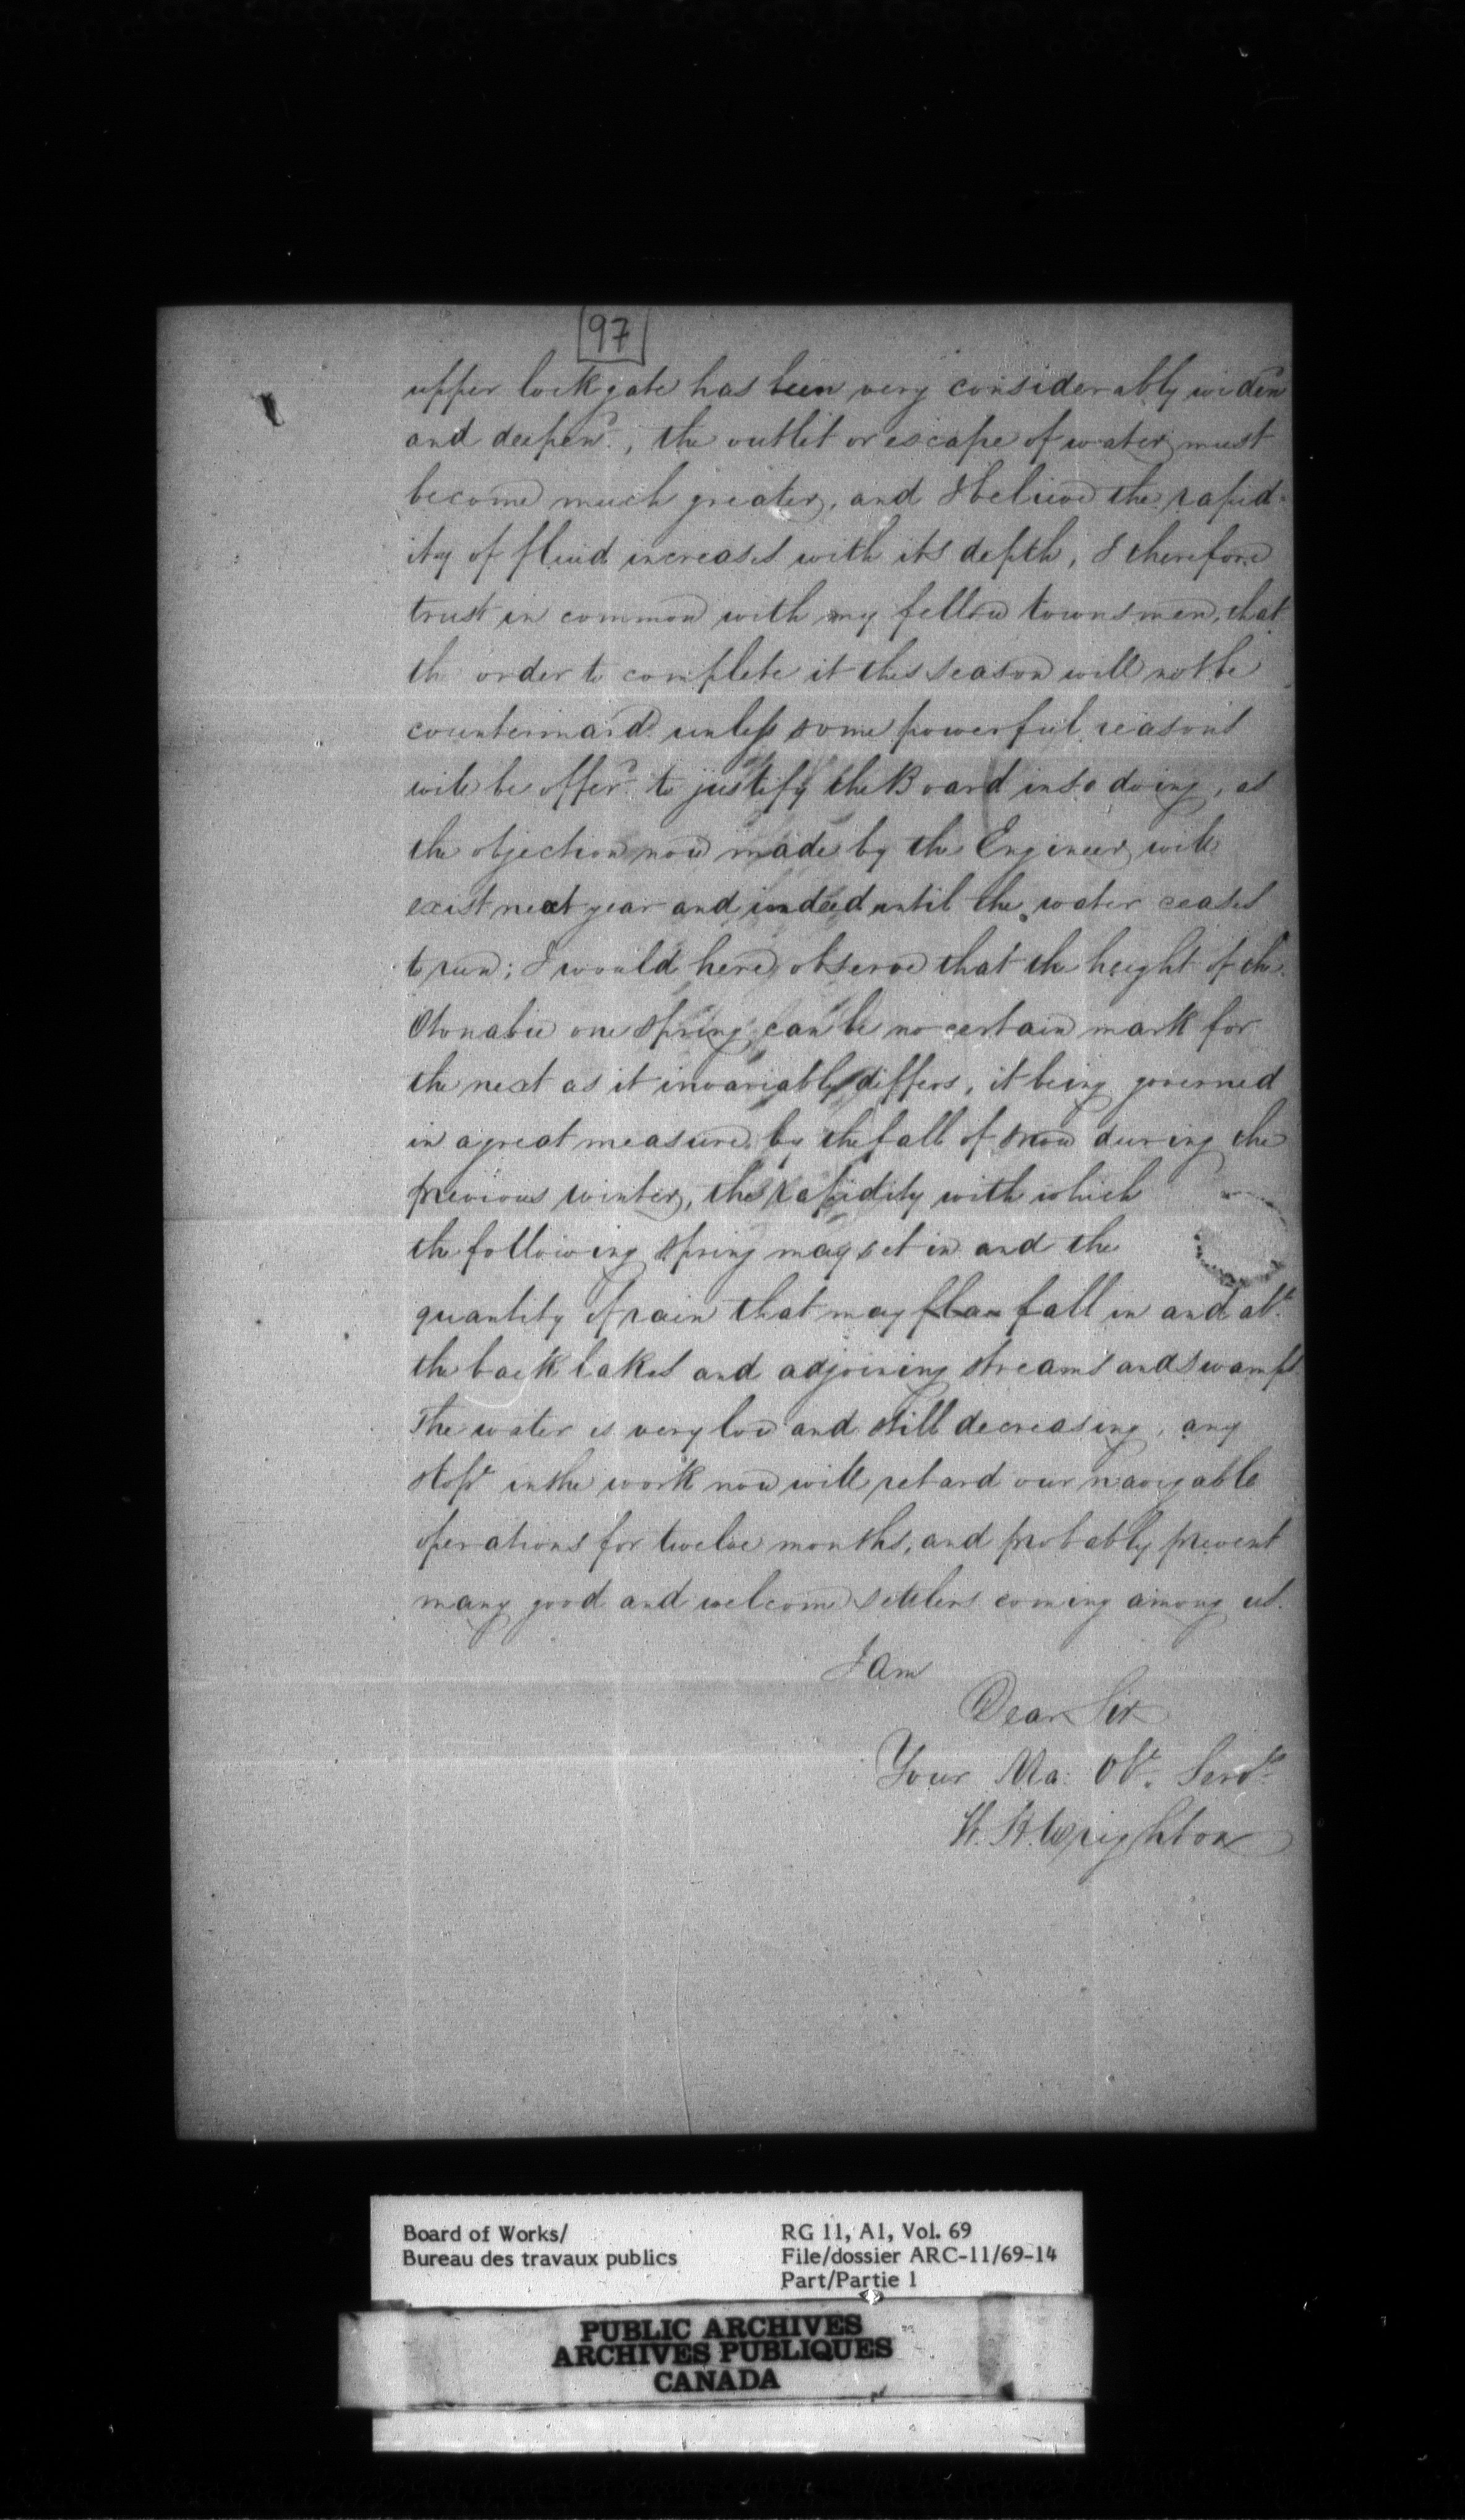 97
upper lock gate has been very considerably widen
and deepend., the outlet or escape of water must
become much greater, and I believe the rapid-
ity of fluid increases with its depth, I therefore
trust in common with my fellow townsmen, that
the order to complete it this season will not be
countermand. unless some powerful reasons
will be offerd. to justify the Board in so doing, as
the objection now made by the Engineer will
exist next year and indeed until the water ceases
to run; I would here observe that the height of the
Otonabee one spring can be no certain mark for
the next as it invariably differs, it being governed
in a great measure by the fall of snow during the
previous winter, the rapidity with which
the following spring may set in and the
quantity of rain that may fall in and abt.
the back lakes and adjoining streams and swamps
The water is very low and still decreasing, any
in the work now will retard our navigable
operations for twelve months, and probably prevent
many good and welcome settlers coming among us.
I am
Dear Sir
Your Obt. Servt.
Wrighton
Board of Works/
Bureau des travaux publics
RG 11, A1, Vol. 69
File/dossier ARC-11/69-14
Part/Partie 1
PUBLIC ARCHIVES
ARCHIVES PUBLIQUES
CANADA